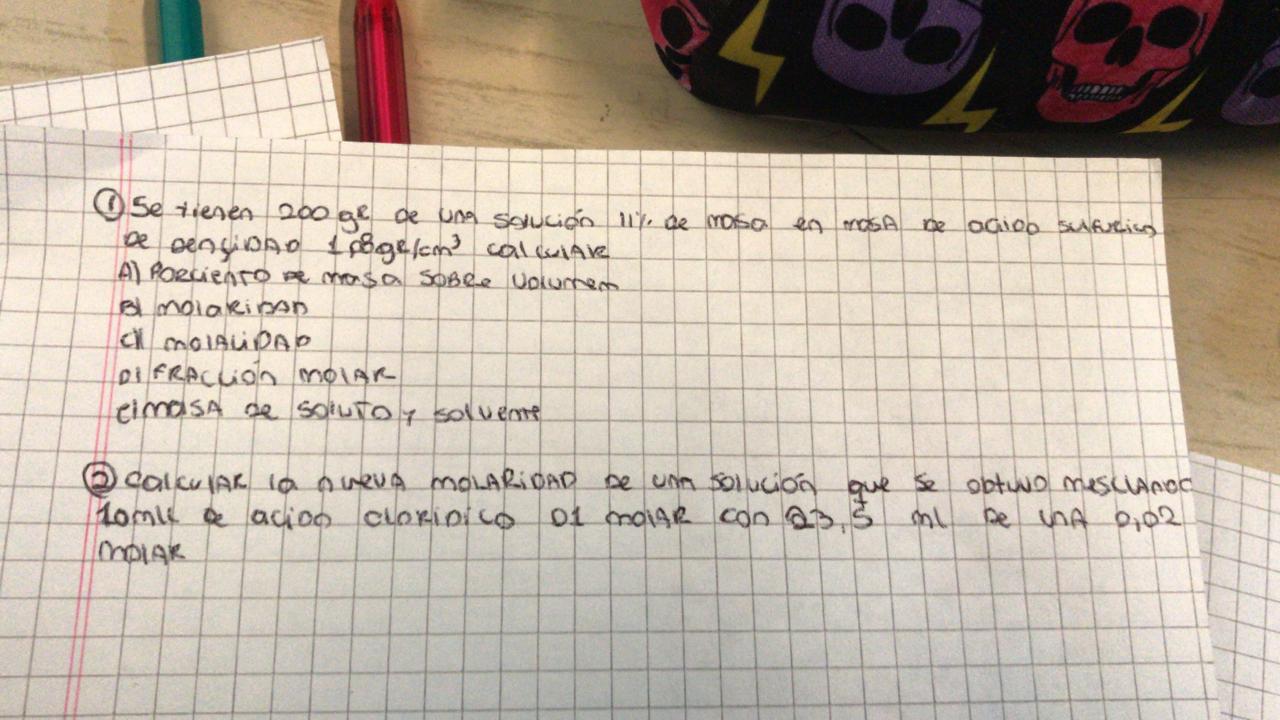 ① Se tienen 200 gr de una solución 11% de masa en masa de acido sulfurico
de densidad 1,8gr/cm³ calcular
A) Porciento de masa sobre volumen
B) molaridad
C) molalidad
D) Fracción molar
E) masa de soluto y solvente
② Calcular la nueva molaridad de una solución que se obtuvo mesclando
10ml de acido cloridico 01 molar con 23,5 ml de una 0,02
molar